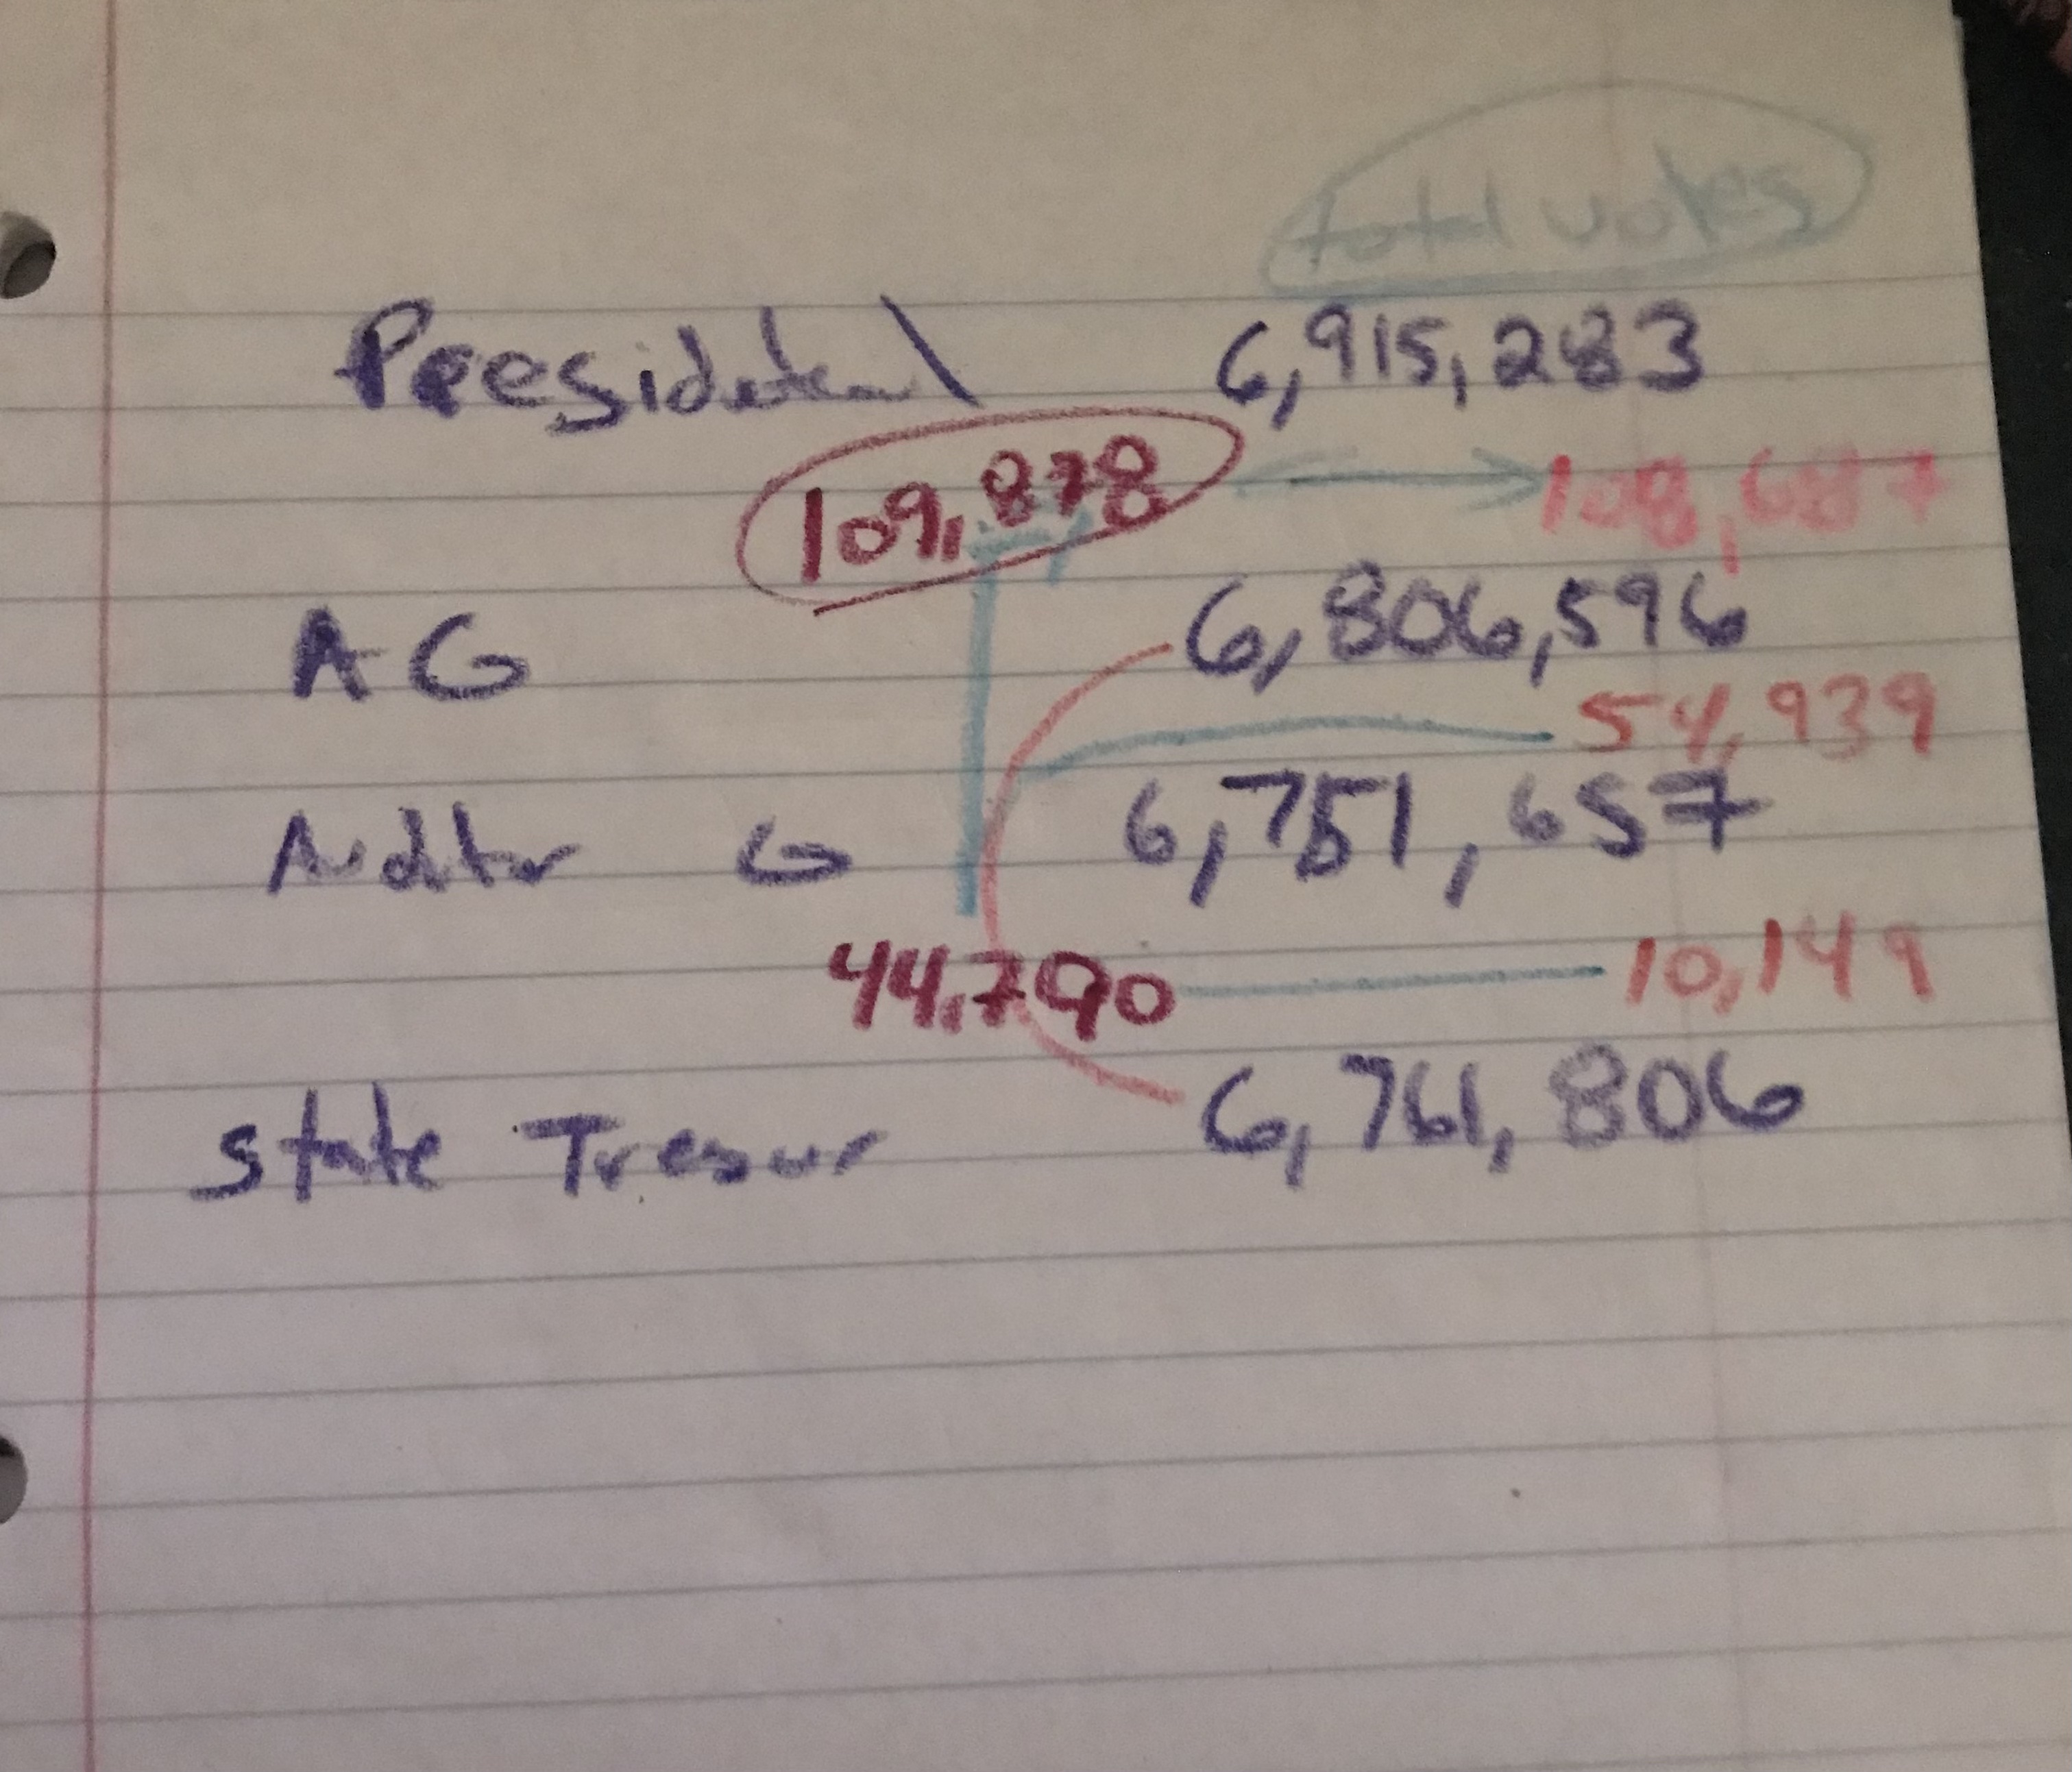 total votes
Presidetal 6,915,283
109,878 108,687
AG 6,806,596
54,939
Auditor G 6,751,657
44,790 10,149
State Tresur 6,761,806